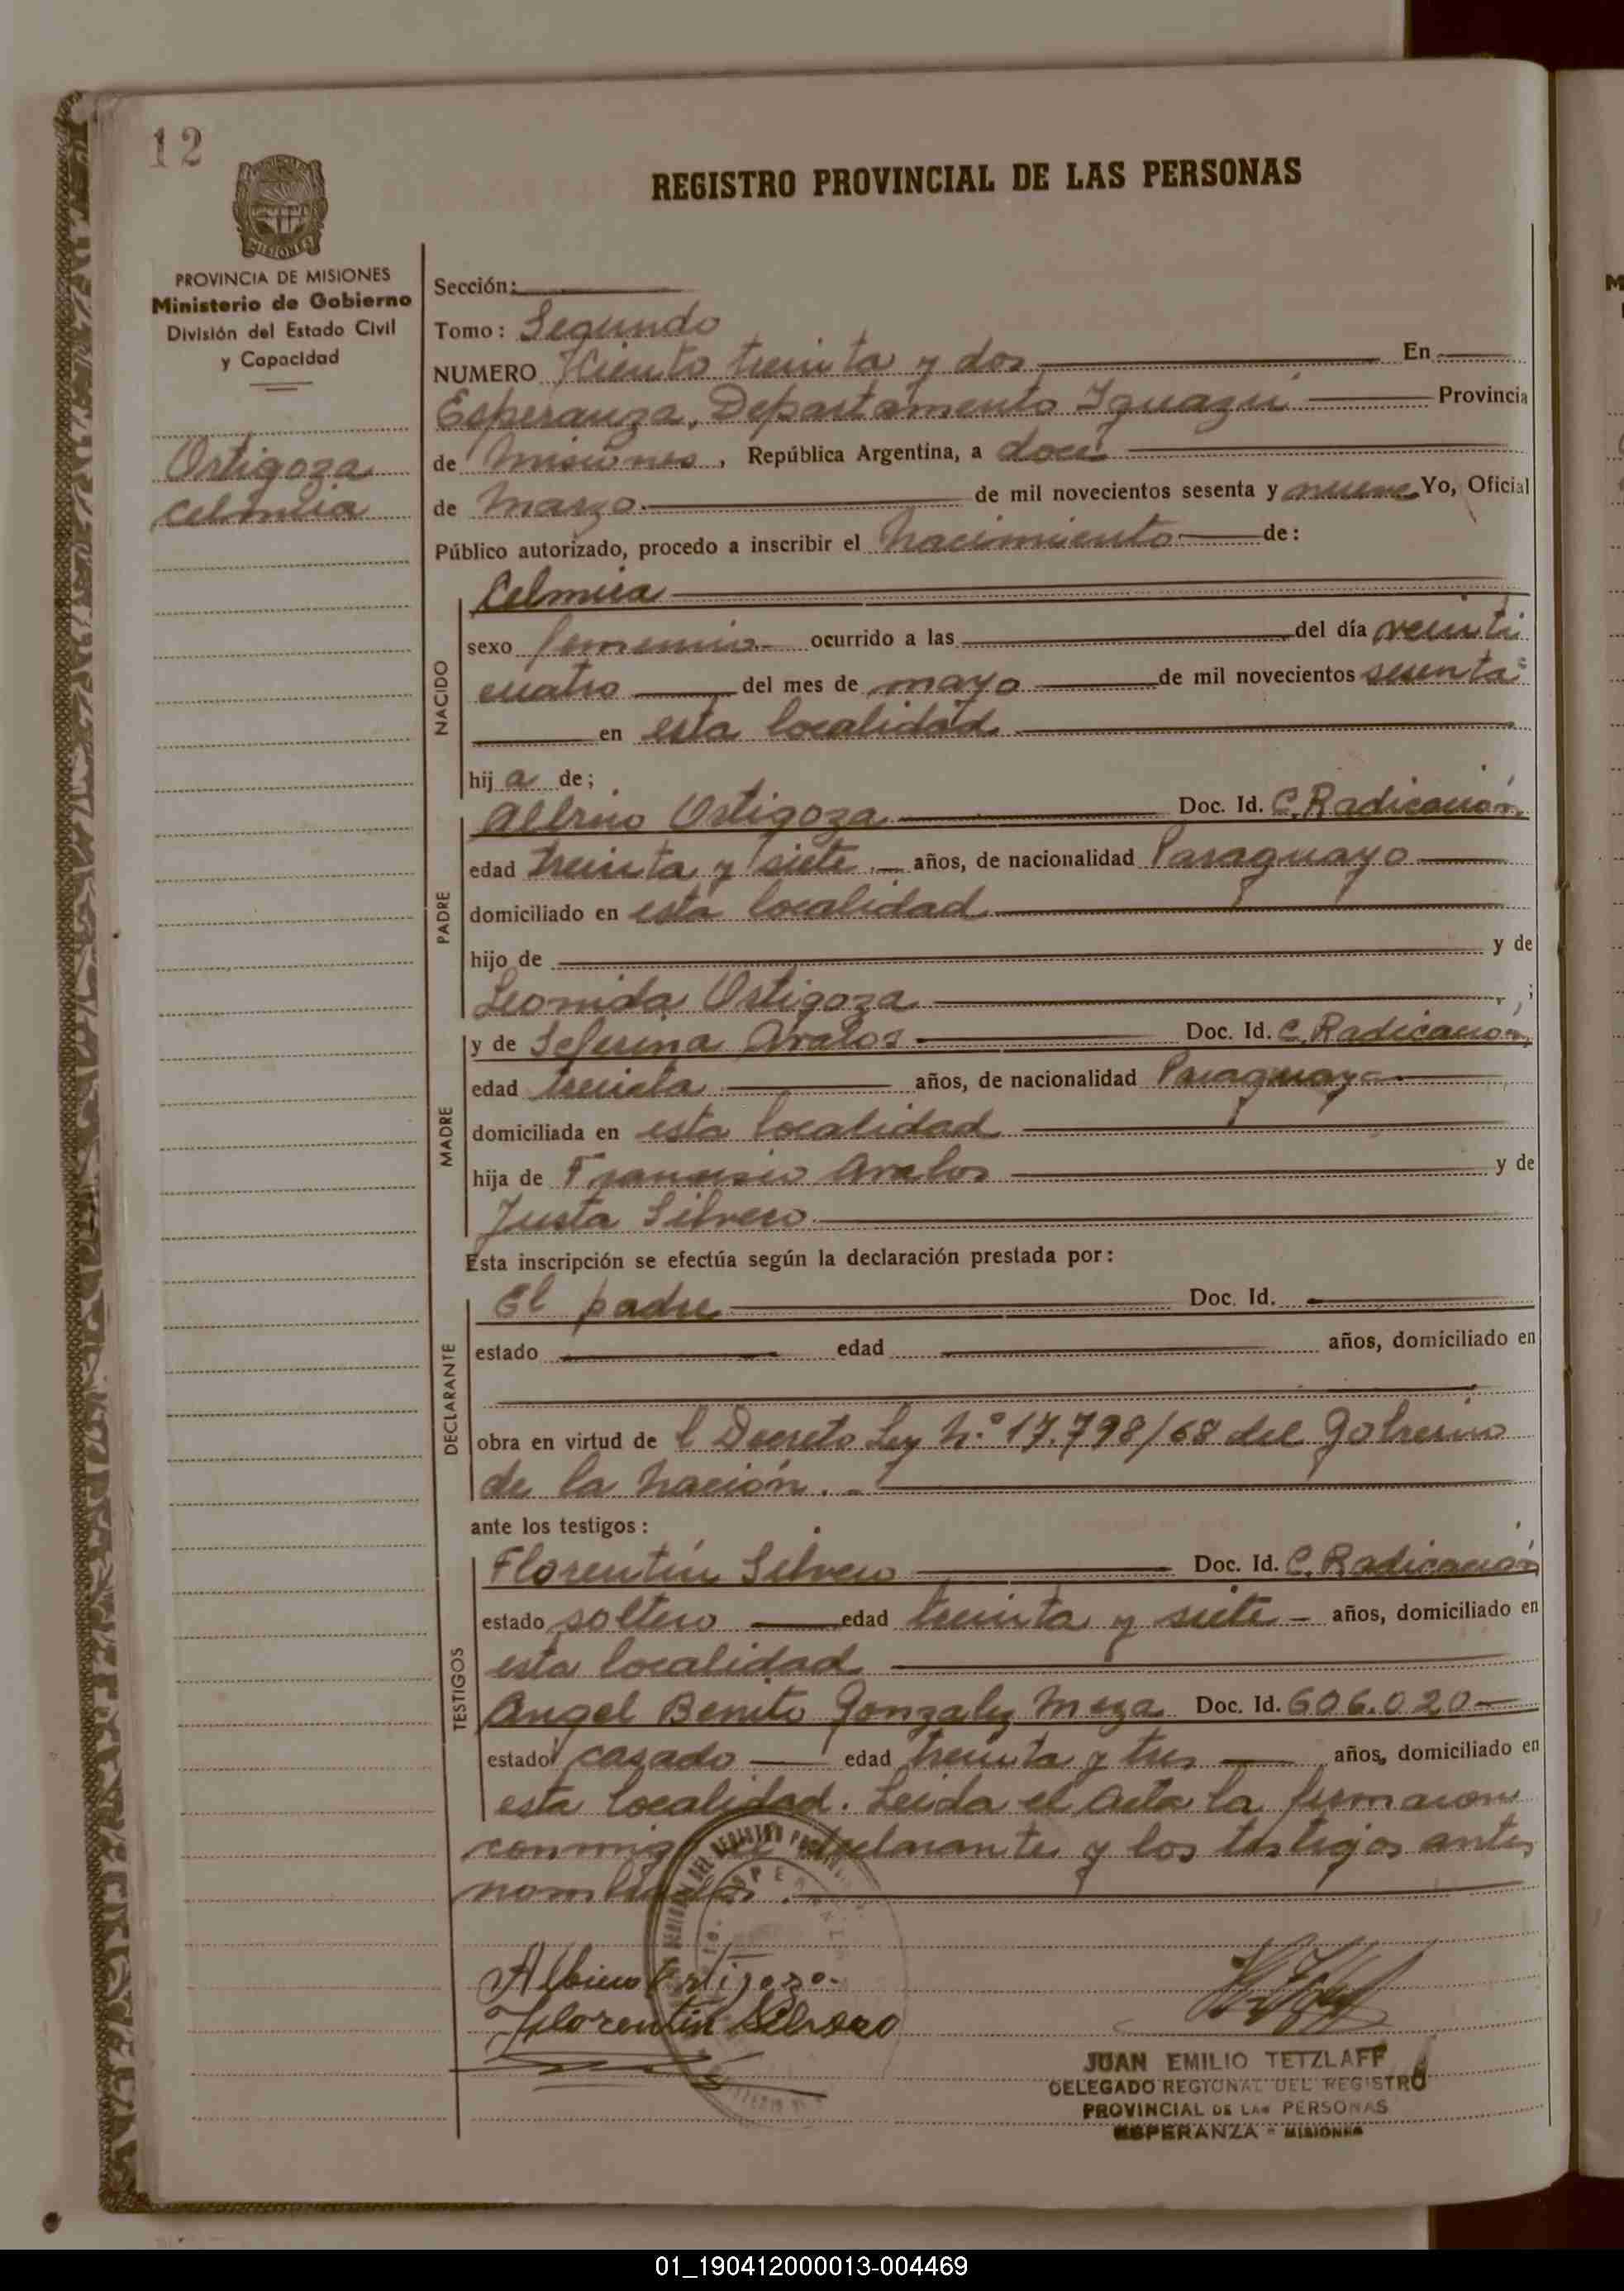 12
REGISTRO PROVINCIAL DE LAS PERSONAS
MISIONES
PROVINCIA DE MISIONES
Ministerio de Gobierno
División del Estado Civil
y Capacidad
Ortigoza
Celmira
Sección:
Tomo: Segundo
NUMERO Ciento treinta y dos En
Esperanza, Departamento Iguazú Provincia
de Misiones, República Argentina, a doce
de Marzo de mil novecientos sesenta y nueve Yo, Oficial
Público autorizado, procedo a inscribir el Nacimiento de:
NACIDO
Celmira
sexo femenino ocurrido a las del día veinti
cuatro del mes de mayo de mil novecientos sesenta
en esta localidad
hij a de;
PADRE
Albino Ortigoza Doc. Id. C. Radicación
edad treinta y siete años, de nacionalidad Paraguayo
domiciliado en esta localidad
hijo de y de
Leonida Ortigoza ;
MADRE
y de Seferina Avalos Doc. Id. C. Radicación
edad treinta años, de nacionalidad Paraguaya
domiciliada en esta localidad
hija de Francisco Avalos y de
Justa Silvero
Esta inscripción se efectúa según la declaración prestada por:
DECLARANTE
El padre Doc. Id.
estado edad años, domiciliado en
obra en virtud de l Decreto Ley N.º 17.798/68 del Gobierno
de la Nación.
ante los testigos:
TESTIGOS
Florentín Silvero Doc. Id. C. Radicación
estado soltero edad treinta y siete años, domiciliado en
esta localidad
Angel Benito Gonzalez Meza Doc. Id. 606.020
estado casado edad treinta y tres años, domiciliado en
esta localidad. Leida el Acta la firmaron
conmigo el declarante y los testigos antes
nombrados.
Albino Ortigoza
Florentin Silvero
JUAN EMILIO TETZLAFF
DELEGADO REGIONAL DEL REGISTRO
PROVINCIAL DE LAS PERSONAS
ESPERANZA - MISIONES
01_190412000013-004469